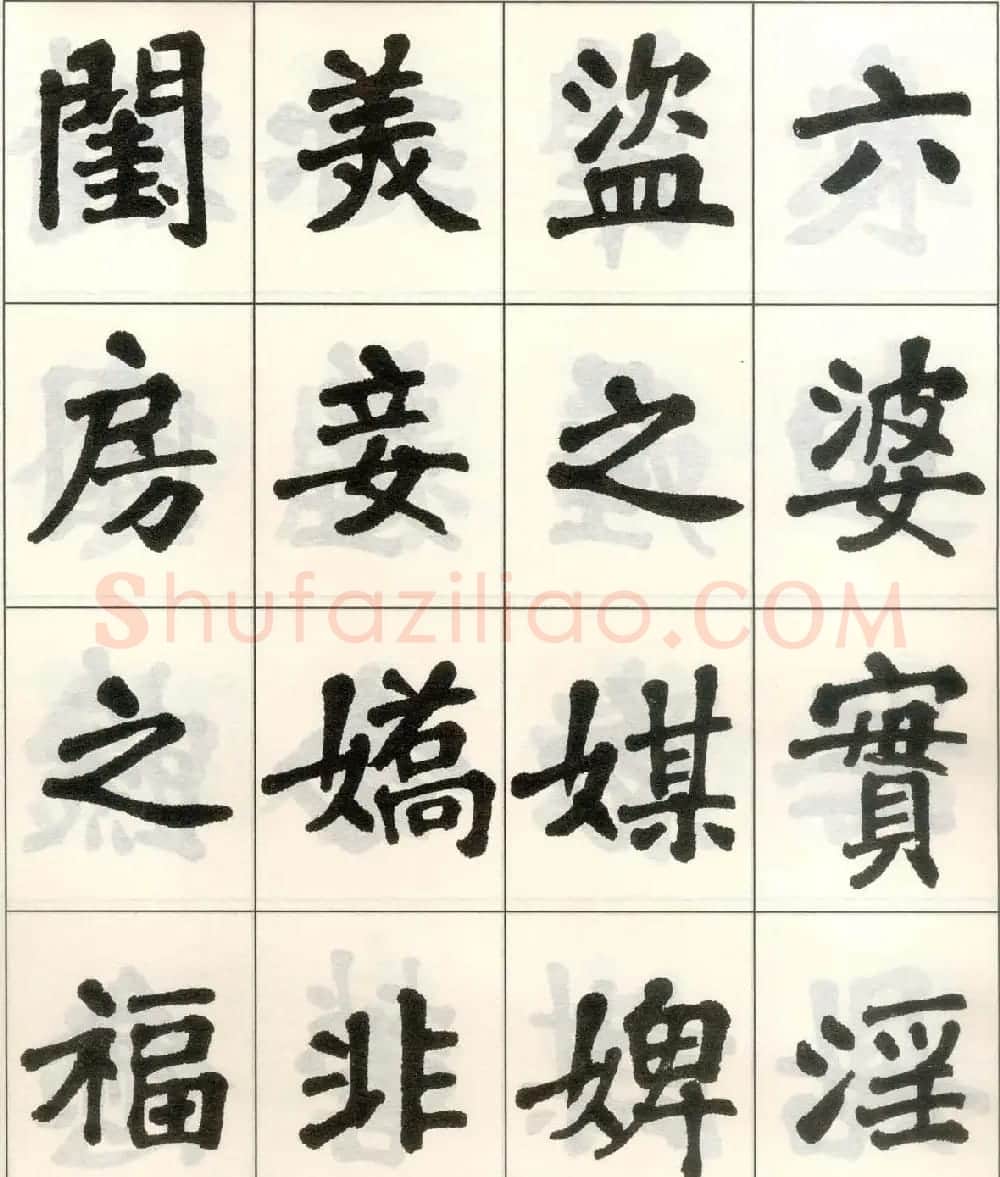 六婆實淫
盜之媒婢
美妾嬌非
閨房之福
Shufaziliao.COM